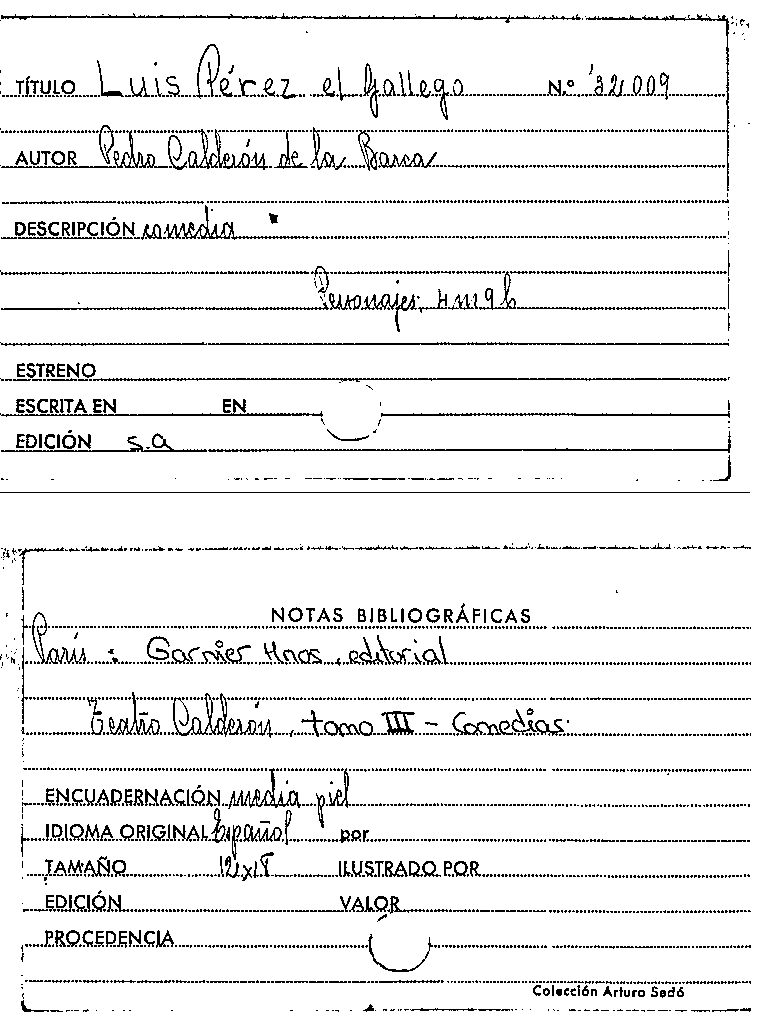 TÍTULO Luis Pérez el Gallego N.º 32009
AUTOR Pedro Calderón de la Barca
DESCRIPCIÓN comedia
Personajes: 4 m 9 h
ESTRENO
ESCRITA EN EN
EDICIÓN s.a
NOTAS BIBLIOGRÁFICAS
París : Garnier Hnos, editorial
Teatro Calderón, tomo III - Comedias.
ENCUADERNACIÓN media piel
IDIOMA ORIGINAL Español por
TAMAÑO 12x18 ILUSTRADO POR
EDICIÓN VALOR
PROCEDENCIA
Colección Arturo Sedó